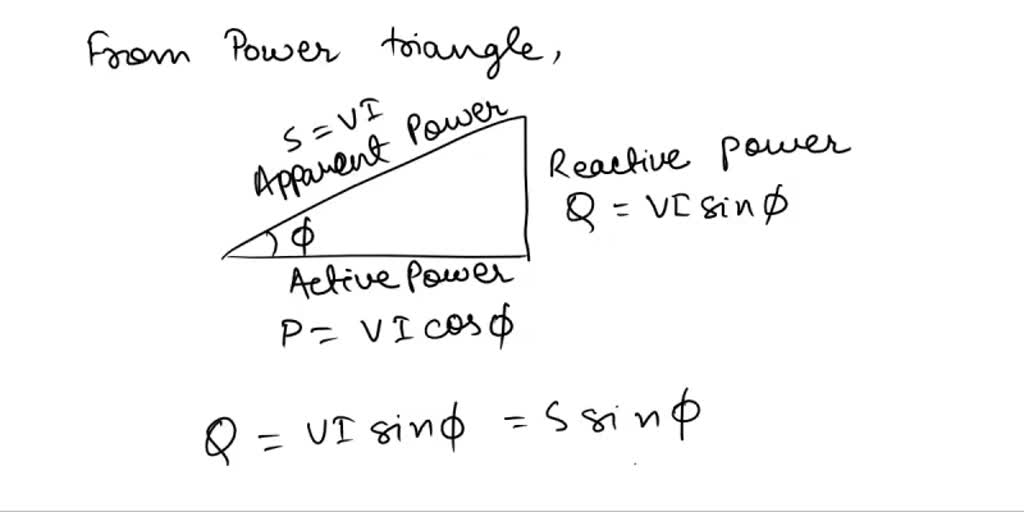 From Power triangle,
S = VI
Apparent Power
Reactive power
Q = VI sin ϕ
ϕ
Active Power
P = VI cos ϕ
Q = VI sin ϕ = S sin ϕ